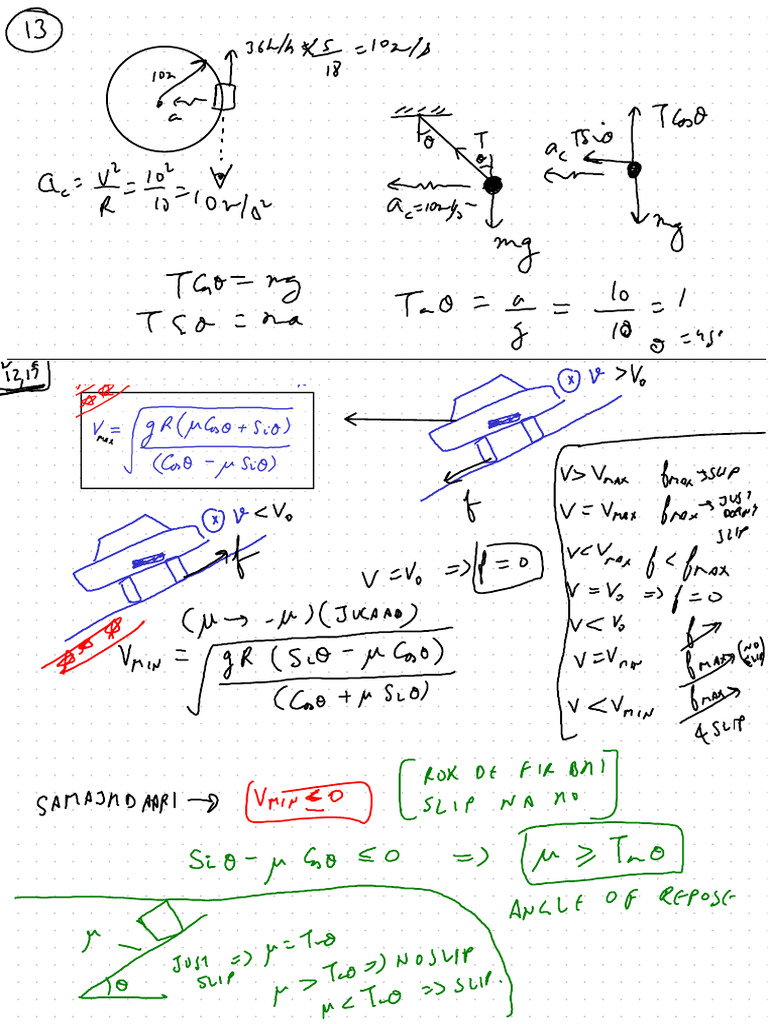 13
36k/h × 5/18 = 10m/s
10m
a
a_c = V²/R = 10²/10 = 10m/s²
θ
T
θ
a_c = 10m/s²
mg
TCosθ
a_c TSiθ
mg
TCosθ = mg
TSθ = ma
Tanθ = a/g = 10/10 = 1
θ = 45°
12,15
V_max = √(gR(μCosθ + Siθ)/(Cosθ − μSiθ))
v > V₀
f
v < V₀
f
V = V₀ => f = 0
(μ → −μ) (JUGAAD)
V_MIN = √(gR (Siθ − μCosθ)/(Cosθ + μSiθ))
V > V_MAX f_MAX → SLIP
V = V_MAX f_MAX → JUST DOESN'T SLIP
V < V_MAX f < f_MAX
V = V₀ => f = 0
V < V₀ f
V = V_MIN f_MAX (NO SLIP)
V < V_MIN f_MAX & SLIP
SAMAJHDAARI → V_MIN ≤ 0
[ROK DE FIR BHI
SLIP NA HO]
Siθ − μCosθ ≤ 0 => μ ≥ Tanθ
ANGLE OF REPOSE
μ
θ
JUST SLIP => μ = Tanθ
μ > Tanθ => NO SLIP
μ < Tanθ => SLIP.